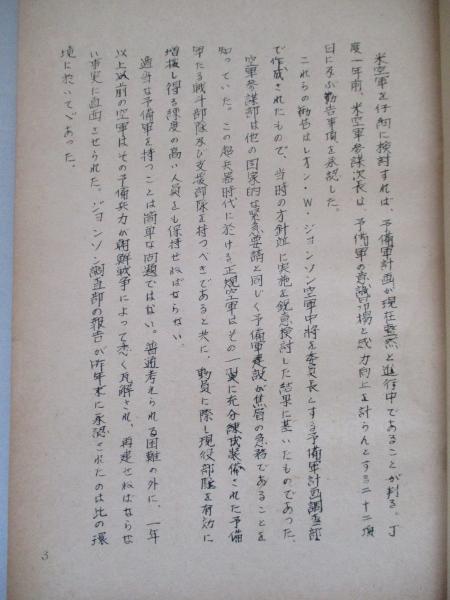 米空軍を仔細に検討すれば、予備軍計画が現在整然と進行中であることが判る。丁
度一年前、米空軍参謀次長は、予備軍の意識昂揚と威力向上を計らんとする二十二項
目に及ぶ勧告事項を承認した。
これらの勧告はレオン・W・ジョンソン空軍中将を委員長とする予備軍計画調査部
で作成されたもので、当時の方針並に実施を鋭意検討した結果に基いたものであった。
空軍参謀部は他の国家的な緊急要請と同じく予備軍建設が焦眉の急務であることを
知っていた。この超兵器時代に於ける正規空軍はその一翼に充分練成装備された予備
軍たる戦斗部隊及び支援部隊を持つべきであると共に、動員に際し現役部隊を有効に
増援し得る練度の高い人員をも保持せねばならない。
適当な予備軍を持つことは簡単な問題ではない。普通考えられる困難の外に、一年
以上以前の空軍はその予備兵力が朝鮮戦争によって悉く瓦解され、再建せねばならぬ
い事実に直面させられた。ジョンソン調査部の報告が昨年末に承認されたのは此の環
境に於いてであった。
3